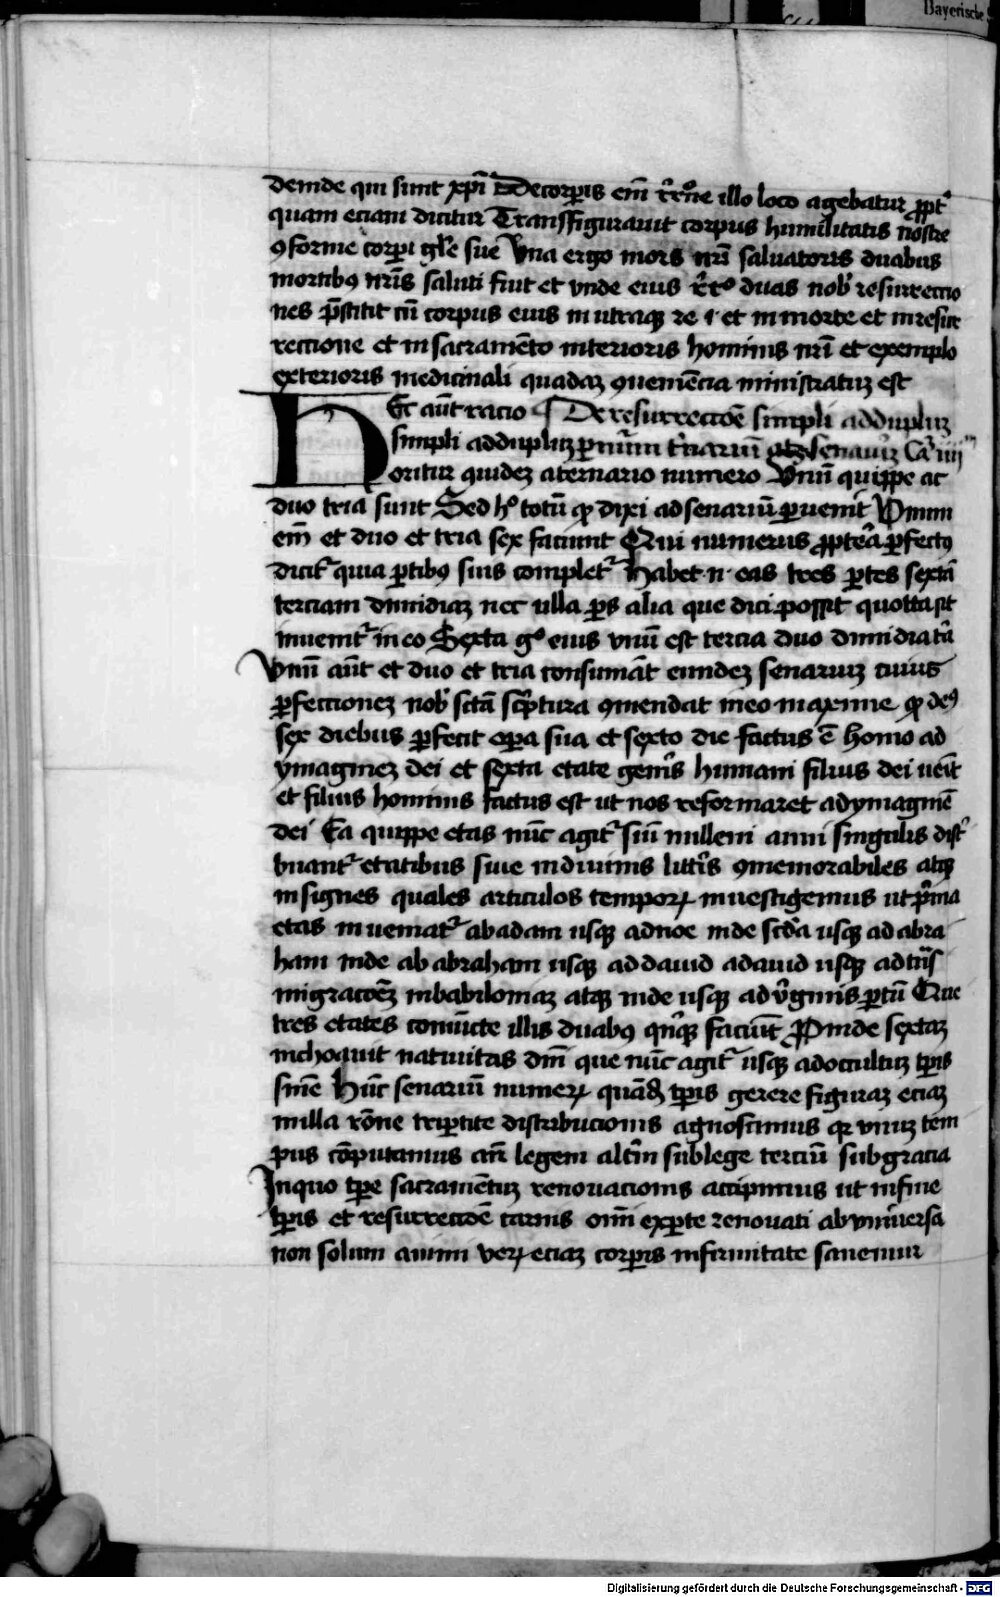 Bayerische
deinde qui sunt xp̄i De corꝑis em̄ rr̄one illo loco agebatur ꝓpt᷑
quam eciam dicitur Transffigurauit corpus humilitatis nostre
ꝯforme corpi gl̄e sue Vna ergo mors nr̄i saluatoris duabus
mortibꝰ nr̄is saluti fuit et vnde eius rr̄o duas nob̄ resurrectio
nes p̄stitit cū corpus eius in utraqꝫ re ·i· et in morte et in resur
rectione et in sacramēto interioris hominis nr̄i et exemplo
exterioris medicinali quadaꝫ ꝯueniēcia ministratuꝫ est
Hec aūt racio De resurrectiōe simpli ad dupluꝫ
simpli ad dupluꝫ ꝑ nūm t̄nariū senariū Ca iiii
oritur quideꝫ a ternario numero Vnū quippe ac
duo tria sunt Sed hͦ totū ꝙ dixi ad senariū ꝑuenit Vnum
em̄ et duo et tria sex faciunt Qui numerus ꝓptea ꝑfectꝰ
dicit᷑ quia ꝑtibꝰ suis complet᷑ Habet ·n· eas tres ꝑtes sextā
terciam dimidiaꝫ nec ulla ꝑs alia que dici possit quotta sit
inuenit᷑ in eo Sexta gͦ eius vnū est tercia duo dimidia t̄a
Vnū aūt et duo et tria consumāt eundeꝫ senariuꝫ cuius
ꝑfectioneꝫ nob̄ sctā sc̄ptura ꝯmendat in eo maxime ꝙ deꝰ
sex diebus ꝑfecit oꝑa sua et sexto die factus ē homo ad
ymagineꝫ dei et sexta etate gen̄is humani filius dei ueīt
et filius hominis factus est ut nos reformaret ad ymaginē
dei Ea quippe etas nūc agit᷑ siū milleni anni singulis dist᷑
buant᷑ etatibus siue in diuinis litt̄is ꝯmemorabiles atqꝫ
insignes quales articulos temporꝝ inuestigemus ut p̄ma
etas inueniat᷑ ab adam usqꝫ ad noe inde scd̄a usqꝫ ad abra
ham inde ab abraham usqꝫ ad dauid a dauid usqꝫ ad tn̄s
migracōeꝫ in babiloniaꝫ atqꝫ inde usqꝫ ad v̄ginis ꝑtū Que
tres etates coniūcte illis duabꝰ qn̄qꝫ faciūt Proinde sextaꝫ
inchoauit natiuitas dn̄i que nūc agit᷑ usqꝫ ad occultuꝫ tꝑis
finē Hūc senariū numerꝝ quādā tꝑis gerere figuraꝫ eciaꝫ
in illa rōne triꝑtite distribucionis agnoscimus qr vnuꝫ tem
pus cōputamus an̄ legem alt̄m sub lege terciū sub gracia
In quo tꝑe sacramētuꝫ renouacionis accipimus ut in fine
tꝑis et resurrectiōe carnis om̄i ex ꝑte renouati ab vniuersa
non solum animi verꝝ eciaꝫ corꝑis infirmitate sanemur
Digitalisierung gefördert durch die Deutsche Forschungsgemeinschaft - DFG